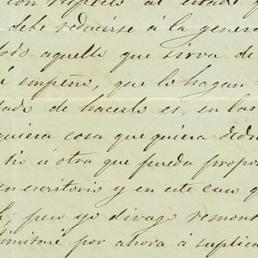 con respecto al estado
debe reducirse á la genera
todo aquello que sirva de
empeño, que lo hagan,
tado de hacerlo es, en las
quiera cosa que quiera dedu
tio ú otra que pueda propo
escritorio y en este caso q
pero yo divago remont
limitaré por ahora á suplica